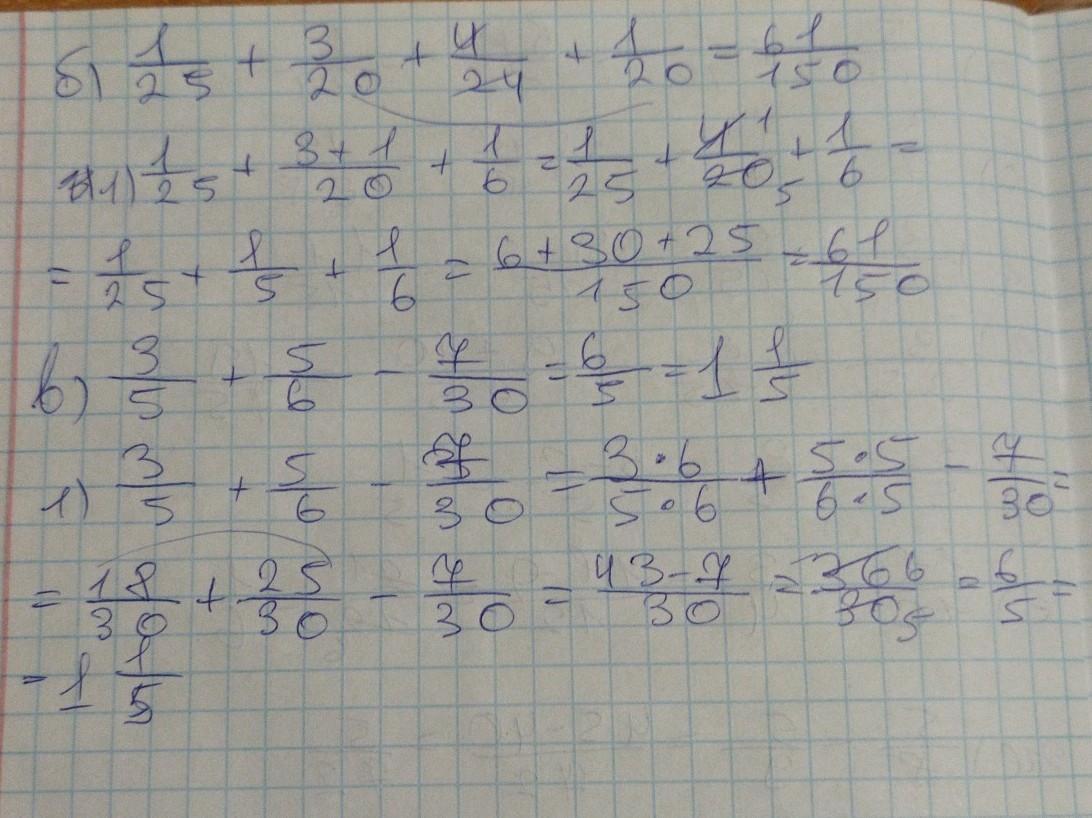 б) 1/25 + 3/20 + 4/24 + 1/20 = 61/150
1) 1/25 + 3+1/20 + 1/6 = 1/25 + 4 1/20 5 + 1/6 =
= 1/25 + 1/5 + 1/6 = 6+30+25/150 = 61/150
в) 3/5 + 5/6 - 7/30 = 6/5 = 1 1/5
1) 3/5 + 5/6 - 7/30 = 3·6/5·6 + 5·5/6·5 - 7/30 =
= 18/30 + 25/30 - 7/30 = 43-7/30 = 36 6/30 5 = 6/5 =
= 1 1/5